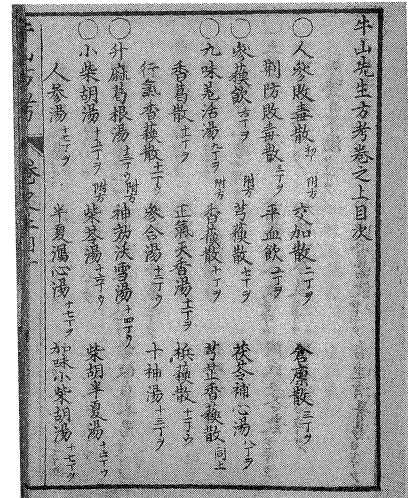 牛山先生方考卷之上目次
〇人參敗毒散 初 附方 交加散 二丁ヲ 倉廩散 三丁ヲ
荊防敗毒散 三丁ヲ 平血飲 五丁ヲ
〇參蘓飲 六丁ヲ 附方 芎蘓散 七丁ヲ 茯苓補心湯 八丁ヲ
〇九味羗活湯 九丁ヲ 附方 香蘓散 十丁ヲ 芎芷香蘓散 同上
香葛散 十一丁ヲ 正氣天香湯 十一丁ヲ 檳蘓散 十二丁ヲ
行氣香蘓散 十二丁ヲ 參合湯 十三丁ヲ 十神湯 十三丁ヲ
〇升麻葛根湯 十三丁ウ 附方 神劾沃雪湯 十四丁ウ
〇小柴胡湯 十五丁ウ 附方 柴苓湯 柴胡半夏湯
人參湯 十七丁ヲ 半夏瀉心湯 十七丁ヲ 加味小柴胡湯 十七丁ヲ